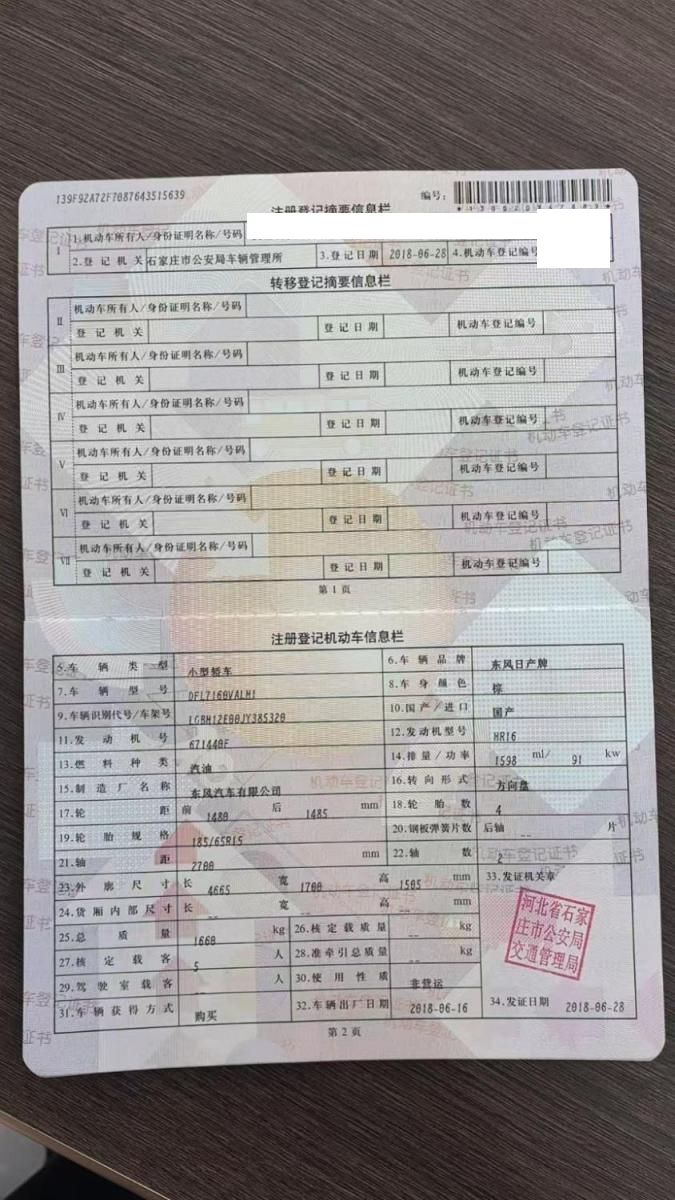 139F92A72F7087643515639 编号:
注册登记摘要信息栏
I 1.机动车所有人/身份证明名称/号码
2.登记机关 石家庄市公安局车辆管理所 3.登记日期 2018-06-28 4.机动车登记编号
转移登记摘要信息栏
II 机动车所有人/身份证明名称/号码
登记机关 登记日期 机动车登记编号
III 机动车所有人/身份证明名称/号码
登记机关 登记日期 机动车登记编号
IV 机动车所有人/身份证明名称/号码
登记机关 登记日期 机动车登记编号
V 机动车所有人/身份证明名称/号码
登记机关 登记日期 机动车登记编号
VI 机动车所有人/身份证明名称/号码
登记机关 登记日期 机动车登记编号
VII 机动车所有人/身份证明名称/号码
登记机关 登记日期 机动车登记编号
第1页
注册登记机动车信息栏
5.车辆类型 小型轿车 6.车辆品牌 东风日产牌
7.车辆型号 DFL7160VALH1 8.车身颜色 棕
9.车辆识别代号/车架号 LGBH12E00JY385320 10.国产/进口 国产
11.发动机号 671440F 12.发动机型号 HR16
13.燃料种类 汽油 14.排量/功率 1598 ml/ 91 kw
15.制造厂名称 东风汽车有限公司 16.转向形式 方向盘
17.轮距 前 1480 后 1485 mm 18.轮胎数 4
19.轮胎规格 185/65R15 20.钢板弹簧片数 后轴 -- 片
21.轴距 2700 mm 22.轴数 2
23.外廓尺寸 长 4665 宽 1700 高 1505 mm 33.发证机关章
24.货厢内部尺寸 长 -- 宽 -- 高 -- mm
25.总质量 1660 kg 26.核定载质量 -- kg
27.核定载客 5 人 28.准牵引总质量 -- kg
29.驾驶室载客 -- 人 30.使用性质 非营运
31.车辆获得方式 购买 32.车辆出厂日期 2018-06-16 34.发证日期 2018-06-28
河北省石家
庄市公安局
交通管理局
第2页